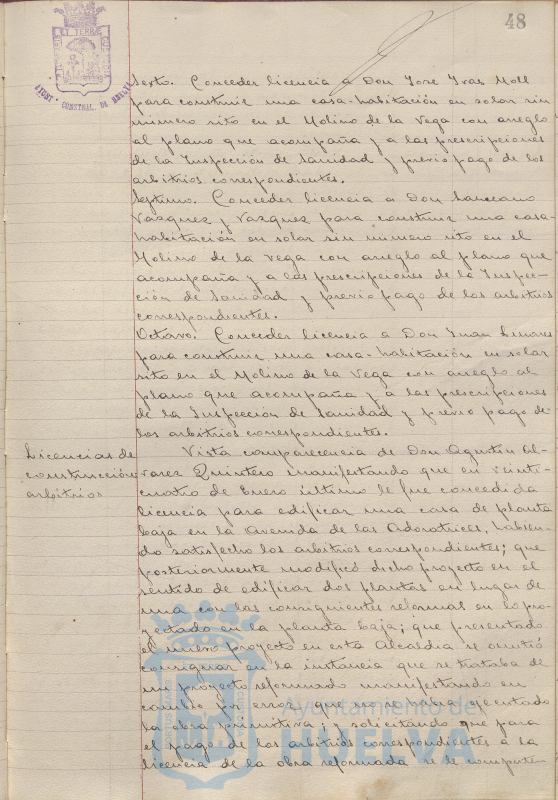 48
AYUNT. CONSTNAL. DE HUELVA
Sexto. Conceder licencia a Don José Ivas Moll
para construir una casa-habitación en solar sin
número sito en el Molino de la Vega con arreglo
al plano que acompaña y a las prescripciones
de la Inspección de Sanidad y previo pago de los
arbitrios correspondientes.
Septimo. Conceder licencia a Don Laureano
Vazquez y Vazquez para construir una casa-
habitación en solar sin número sito en el
Molino de la Vega con arreglo al plano que
acompaña y a las prescripciones de la Inspec-
ción de Sanidad y previo pago de los arbitrios
correspondientes.
Octavo. Conceder licencia a Don Juan Linares
para construir una casa-habitación en solar
sito en el Molino de la Vega con arreglo al
plano que acompaña y a las prescripciones
de la Inspección de Sanidad y previo pago de
los arbitrios correspondientes.
Licencias de
construcción
arbitrios
Vista comparecencia de Don Agustín Al-
varez Quintero manifestando que en veinte-
cuatro de Enero último le fue concedida
licencia para edificar una casa de planta
baja en la Avenida de las Adoratrices, habien-
do satisfecho los arbitrios correspondientes; que
posteriormente modificó dicho proyecto en el
sentido de edificar dos plantas en lugar de
una con las consiguientes reformas en lo pro-
yectado en la planta baja; que presentado
el nuevo proyecto en esta Alcaldia se omitió
consignar en la instancia que se trataba de
un proyecto reformado manifestando en
cambio por error que no se habia ejecutado
la obra primitiva; y solicitando que para
el pago de los arbitrios correspondientes a la
licencia de la obra reformada se le compute
Ayuntamiento de
HUELVA